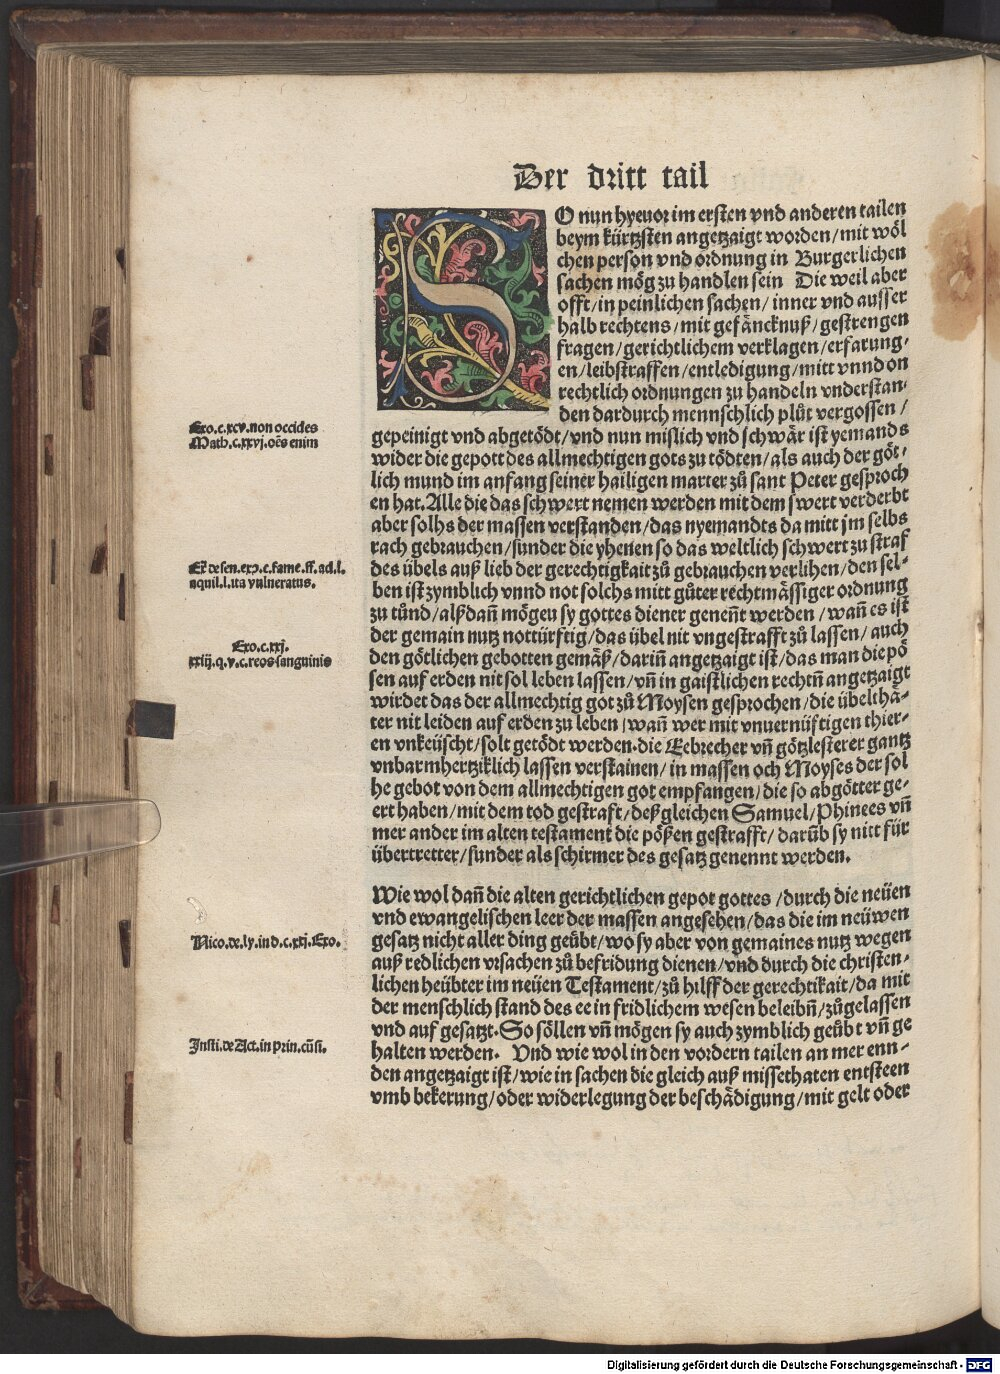 Der dritt tail
SO nun hyeuor im ersten vnd anderen tailen
beym kürtzsten angetzaigt worden/mit wöl
chen person vnd ordnung in Burgerlichen
sachen mög zu handlen sein Die weil aber
offt/in peinlichen sachen/inner vnd ausser
halb rechtens/mit gefäncknuß/gestrengen
fragen/gerichtlichem verklagen/erfarung-
en/leibstraffen/entledigung/mitt vnnd on
rechtlich ordnungen zu handeln vnderstan-
den dardurch mennschlich plůt vergossen/
gepeinigt vnd abgetödt/vnd nun mislich vnd schwär ist yemands
wider die gepott des allmechtigen gots zu tödten/als auch der göt-
lich mund im anfang seiner hailigen marter zů sant Peter gesproch
en hat.Alle die das schwert nemen werden mit dem swert verderbt
aber solhs der massen verstanden/das nyemandts da mitt jm selbs
rach gebrauchen/sunder die yhenen so das weltlich schwert zu straf
des übels auß lieb der gerechtigkait zů gebrauchen verlihen/den sel-
ben ist zymblich vnnd not solchs mitt gůter rechtmässiger ordnung
zu tůnd/alßdañ mögeu sy gottes diener geneñt werden/wañ es ist
der gemain nutz nottürftig/das übel nit vngestrafft zů lassen/auch
den götlichen gebotten gemäß/dariñ angetzaigt ist/das man die pö
sen auf erden nit sol leben lassen/vñ in gaistlichen rechtñ angetzaigt
wirdet das der allmechtig got zů Moysen gesprochen/die übelthä-
ter nit leiden auf erden zu leben/wañ wer mit vnuernüftigen thier-
en vnkeüscht/solt getödt werden.die Eebrecher vñ götzlesterer gantz
vnbarmhertziklich lassen verstainen/in massen och Moyses der sol
he gebot von dem allmechtigen got empfangen/die so abgötter ge-
ert haben/mit dem tod gestraft/deßgleichen Samuel/Phinees vñ
mer ander im alten testament die pößen gestrafft/darūb sy nitt für
übertretter/sunder als schirmer des gesatz genennt werden.
Wie wol dañ die alten gerichtlichen gepot gottes/durch die neüen
vnd ewangelischen leer der massen angesehen/das die im neüwen
gesatz nicht aller ding geübt/wo sy aber von gemaines nutz wegen
auß redlichen vrsachen zů befridung dienen/vnd durch die christen-
lichen heübter im neüen Testament/zů hilff der gerechtikait/da mit
der menschlich stand des ee in fridlichem wesen beleibñ/zůgelassen
vnd auf gesatzt.So söllen vñ mögen sy auch zymblich geübt vñ ge
halten werden. Vnd wie wol in den vordern tailen an mer enn-
den angetzaigt ist/wie in sachen die gleich auß missethaten entsteen
vmb bekerung/oder widerlegung der beschädigung/mit gelt oder
Exo.c.xcv.non occides
Math.c.xxvj.oēs enim
Ex̄ de sen.exɔ.c.fame.ff.ad.l.
aquil.l.ita vulneratus.
Exo.c.xxj.
xxiij.q.v.c.reos sanguinis
Nico.de.ly.in d.c.xxj.Exo.
Insti.de Act.in prin.cū si.
Digitalisierung gefördert durch die Deutsche Forschungsgemeinschaft - DFG